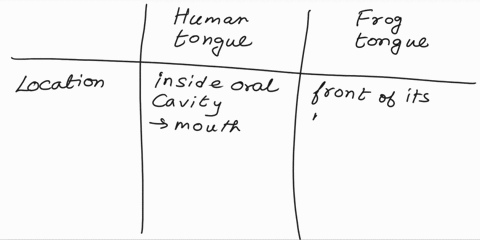 Human
tongue
Frog
tongue
Location
inside oral
Cavity
→ mouth
front of its